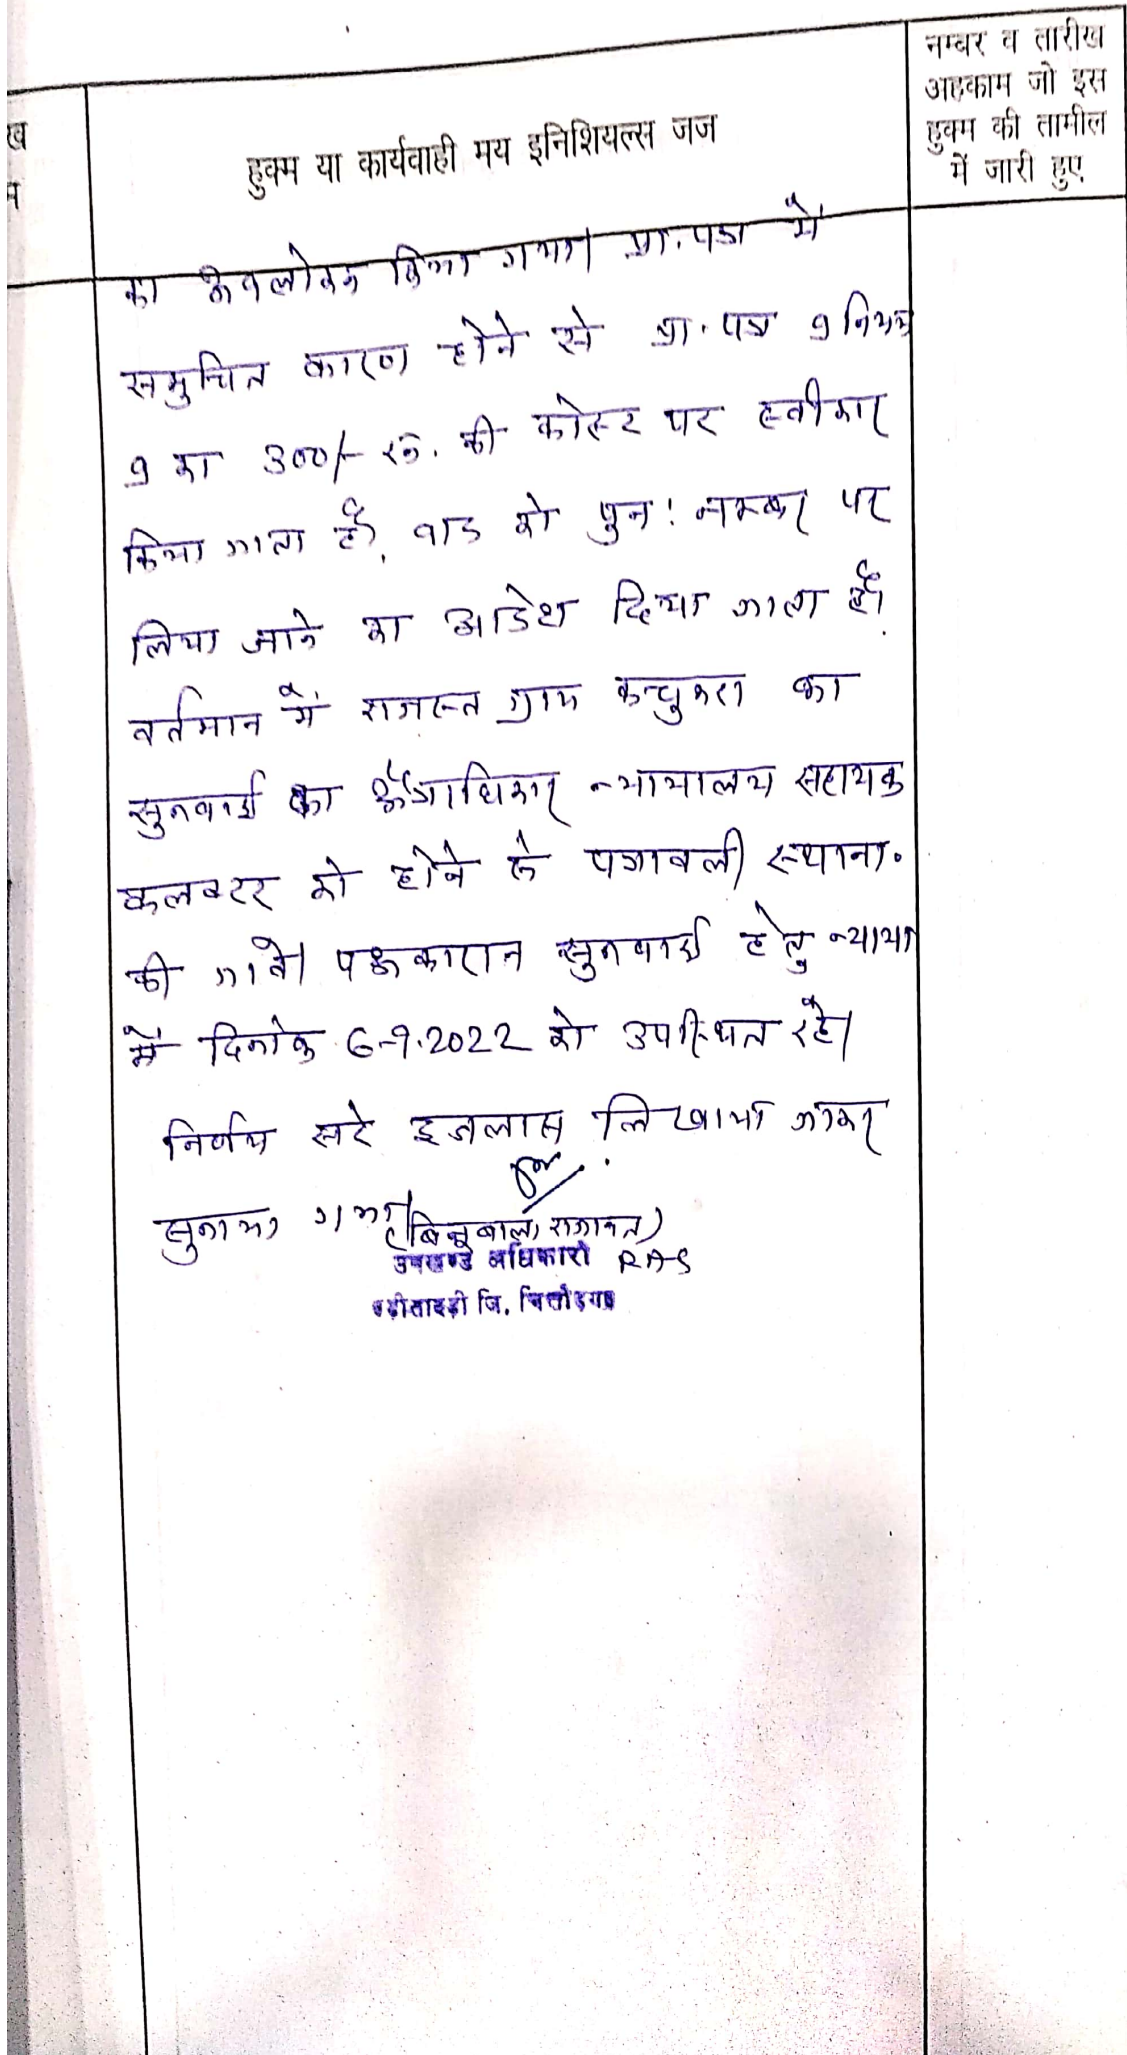 ख
हुक्म या कार्यवाही मय इनिशियल्स जज
नम्बर व तारीख
अहकाम जो इस
हुक्म की तामील
में जारी हुए
का अवलोकन किया गया। प्रा.पत्र में
समुचित कारण होने से प्रा.पत्र 9 नियम
9 का 300/- रू. की कोस्ट पर स्वीकार
किया जाता है, वाद को पुन: नम्बर पर
लिया जाने का आदेश दिया जाता है।
वर्तमान में ग्राम का
सुनवाई का क्षैत्राधिकार न्यायालय सहायक
कलक्टर को होने से पत्रावली स्थाना.
की जावे। पक्षकारान सुनवाई हेतु न्याया
में दिनांक 6-9.2022 को उपस्थित रहे।
निर्णय सरे इजलास लिखाया जाकर
सुनाया गया।
(बिन्दुबाला राजावत)
उपखण्ड अधिकारी RAS
बड़ीसादड़ी जि. चित्तौड़गढ़